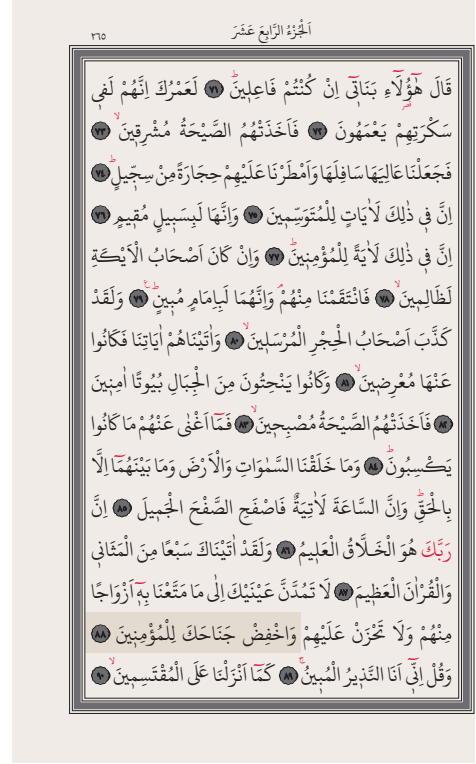 اَلْجُزْءُ الرَّابِعَ عَشَرَ
٢٦٥
قَالَ هٰٓؤُ۬لَٓاءِ بَنَاتٖٓي اِنْ كُنْتُمْ فَاعِلٖينَۜ ﴿٧١﴾ لَعَمْرُكَ اِنَّهُمْ لَفٖي
سَكْرَتِهِمْ يَعْمَهُونَ ﴿٧٢﴾ فَاَخَذَتْهُمُ الصَّيْحَةُ مُشْرِقٖينَۙ ﴿٧٣﴾
فَجَعَلْنَا عَالِيَهَا سَافِلَهَا وَاَمْطَرْنَا عَلَيْهِمْ حِجَارَةً مِنْ سِجّٖيلٍۜ ﴿٧٤﴾
اِنَّ فٖي ذٰلِكَ لَاٰيَاتٍ لِلْمُتَوَسِّمٖينَ ﴿٧٥﴾ وَاِنَّهَا لَبِسَبٖيلٍ مُقٖيمٍ ﴿٧٦﴾
اِنَّ فٖي ذٰلِكَ لَاٰيَةً لِلْمُؤْمِنٖينَۜ ﴿٧٧﴾ وَاِنْ كَانَ اَصْحَابُ الْاَيْكَةِ
لَظَالِمٖينَۙ ﴿٧٨﴾ فَانْتَقَمْنَا مِنْهُمْۢ وَاِنَّهُمَا لَبِاِمَامٍ مُبٖينٍۜ۟ ﴿٧٩﴾ وَلَقَدْ
كَذَّبَ اَصْحَابُ الْحِجْرِ الْمُرْسَلٖينَۙ ﴿٨٠﴾ وَاٰتَيْنَاهُمْ اٰيَاتِنَا فَكَانُوا
عَنْهَا مُعْرِضٖينَۙ ﴿٨١﴾ وَكَانُوا يَنْحِتُونَ مِنَ الْجِبَالِ بُيُوتًا اٰمِنٖينَ
﴿٨٢﴾ فَاَخَذَتْهُمُ الصَّيْحَةُ مُصْبِحٖينَۙ ﴿٨٣﴾ فَمَٓا اَغْنٰى عَنْهُمْ مَا كَانُوا
يَكْسِبُونَۜ ﴿٨٤﴾ وَمَا خَلَقْنَا السَّمٰوَاتِ وَالْاَرْضَ وَمَا بَيْنَهُمَٓا اِلَّا
بِالْحَقِّۜ وَاِنَّ السَّاعَةَ لَاٰتِيَةٌ فَاصْفَحِ الصَّفْحَ الْجَمٖيلَ ﴿٨٥﴾ اِنَّ
رَبَّكَ هُوَ الْخَلَّاقُ الْعَلٖيمُ ﴿٨٦﴾ وَلَقَدْ اٰتَيْنَاكَ سَبْعًا مِنَ الْمَثَانٖي
وَالْقُرْاٰنَ الْعَظٖيمَ ﴿٨٧﴾ لَا تَمُدَّنَّ عَيْنَيْكَ اِلٰى مَا مَتَّعْنَا بِهٖٓ اَزْوَاجًا
مِنْهُمْ وَلَا تَحْزَنْ عَلَيْهِمْ وَاخْفِضْ جَنَاحَكَ لِلْمُؤْمِنٖينَ ﴿٨٨﴾
وَقُلْ اِنّٖٓي اَنَا النَّذٖيرُ الْمُبٖينُۚ ﴿٨٩﴾ كَمَٓا اَنْزَلْنَا عَلَى الْمُقْتَسِمٖينَۙ ﴿٩٠﴾